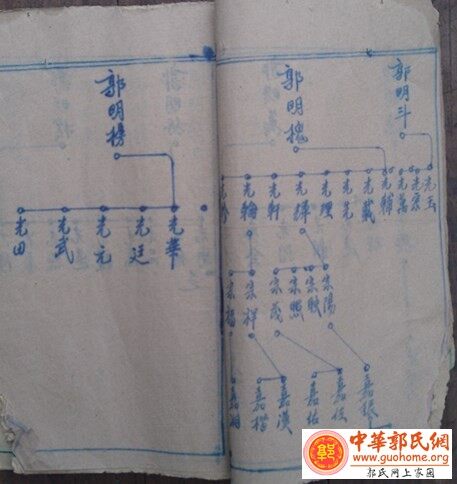 郭明斗
光玉
光宗
光萬
郭明槐
光輔
光戴
光先
光理
光輝
光軒
光輪
宗陽
宗映
宗照
宗茂
宗祥
宗福
嘉振
嘉俊
嘉佑
嘉漢
嘉楷
郭明榜
光華
光廷
光元
光武
光田
中華郭氏網
www.guohome.org
郭氏网上家園